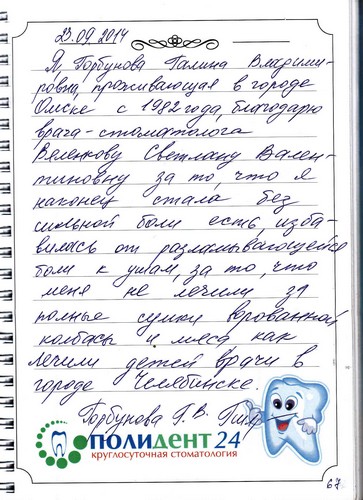 23.09.2014
Я, Горбунова Галина Владими-
ровна, проживающая в городе
Омске с 1982 года, благодарю
врача-стоматолога
Веленкову Светлану Вален-
тиновну за то, что я
наконец стала без
сильной боли есть, изба-
вилась от разламывающейся
боли к ушам, за то, что
меня не лечили за
полные сумки ворованной
колбасы и мяса, как
лечили детей врачи в
городе Челябинске.
Горбунова Г. В.
ПОЛИДЕНТ 24
круглосуточная стоматология
67